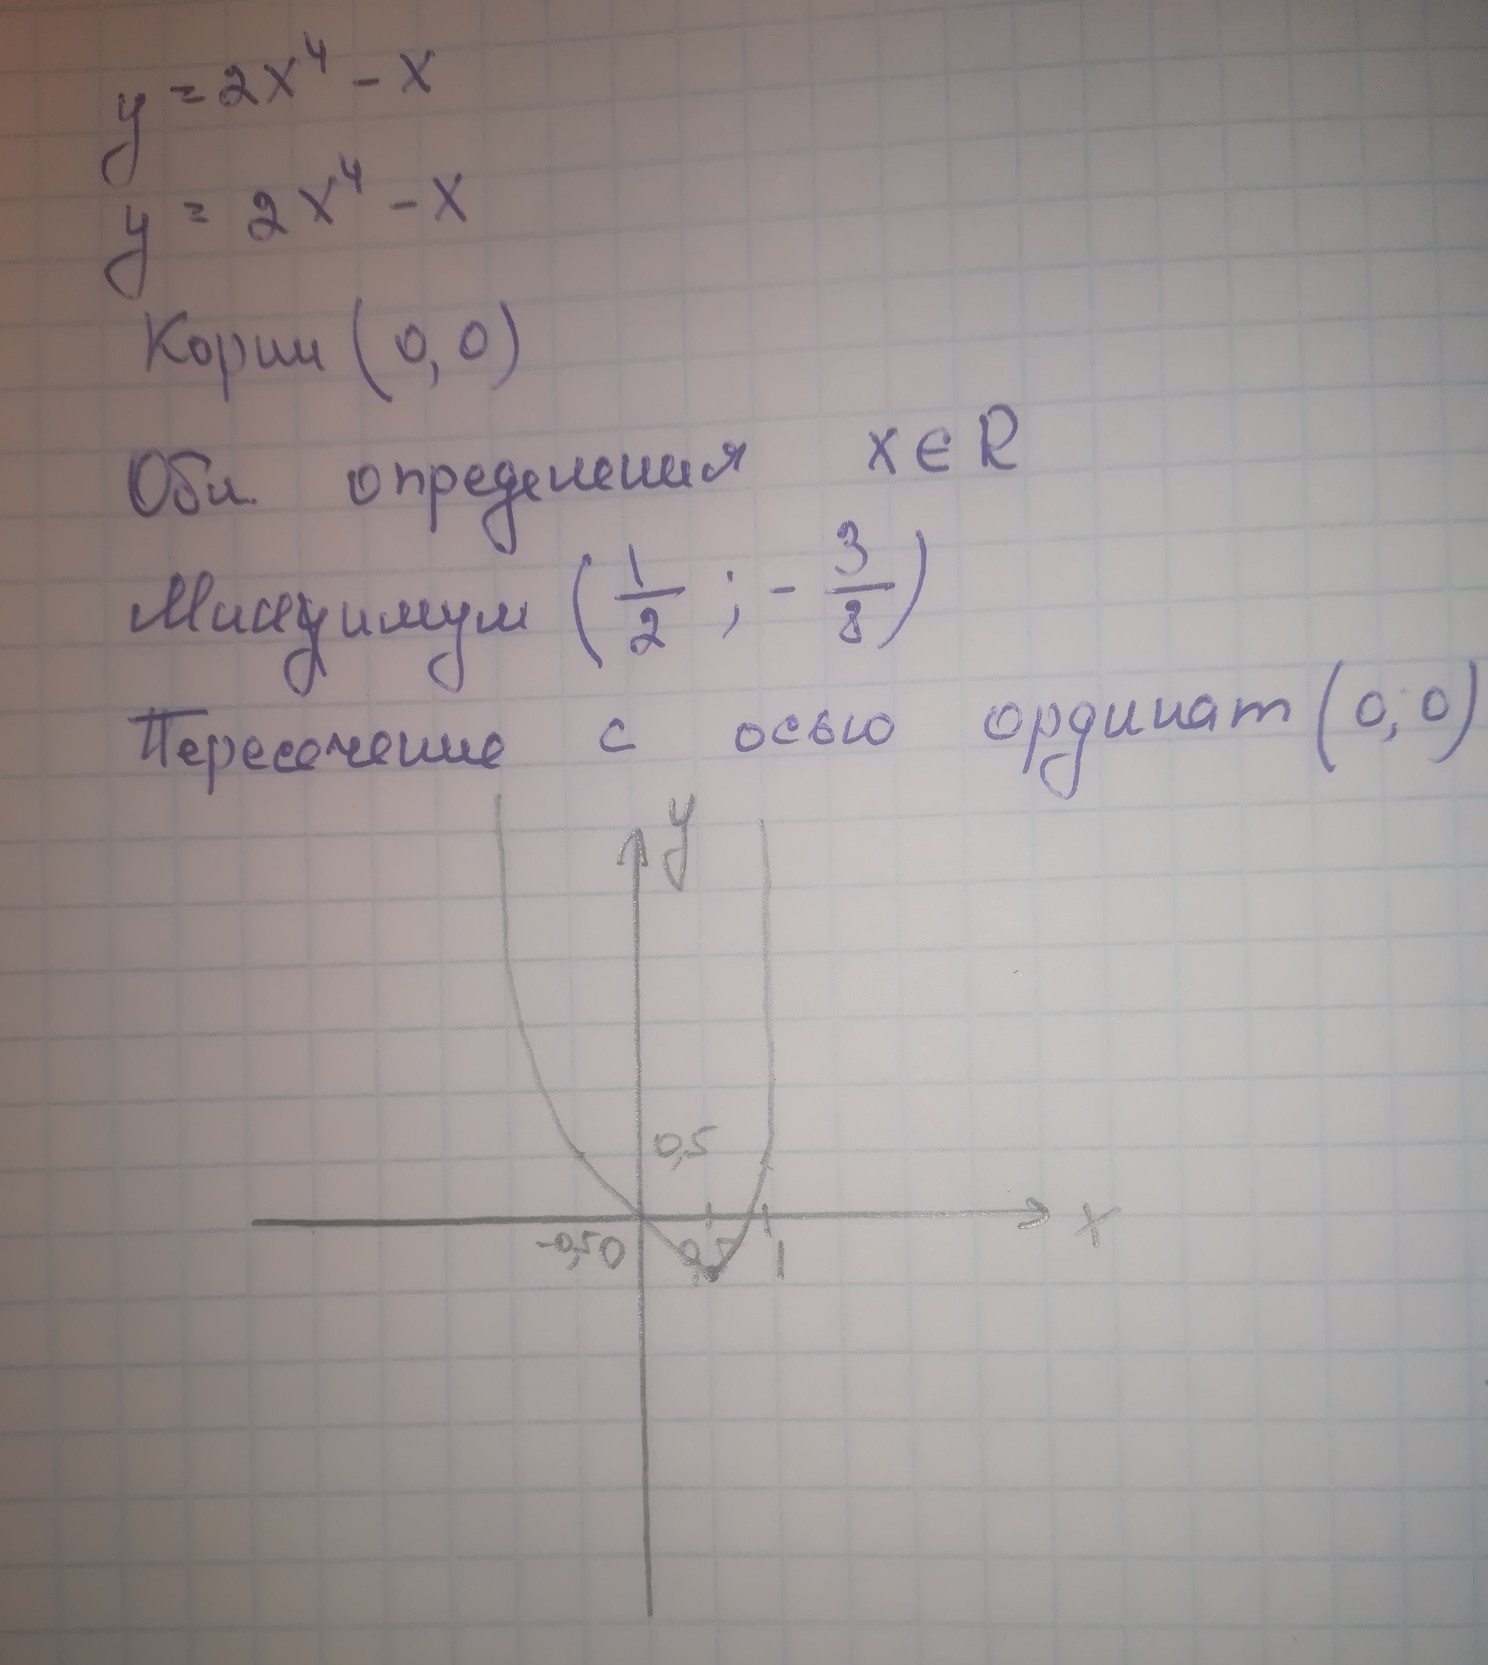 y = 2x⁴ - x
y = 2x⁴ - x
Корни (0,0)
Обл. определения x∈R
Минимум (1/2 ; - 3/8)
Пересечение с осью ординат (0,0)
y
0,5
-0,5 0 0,5 1 x